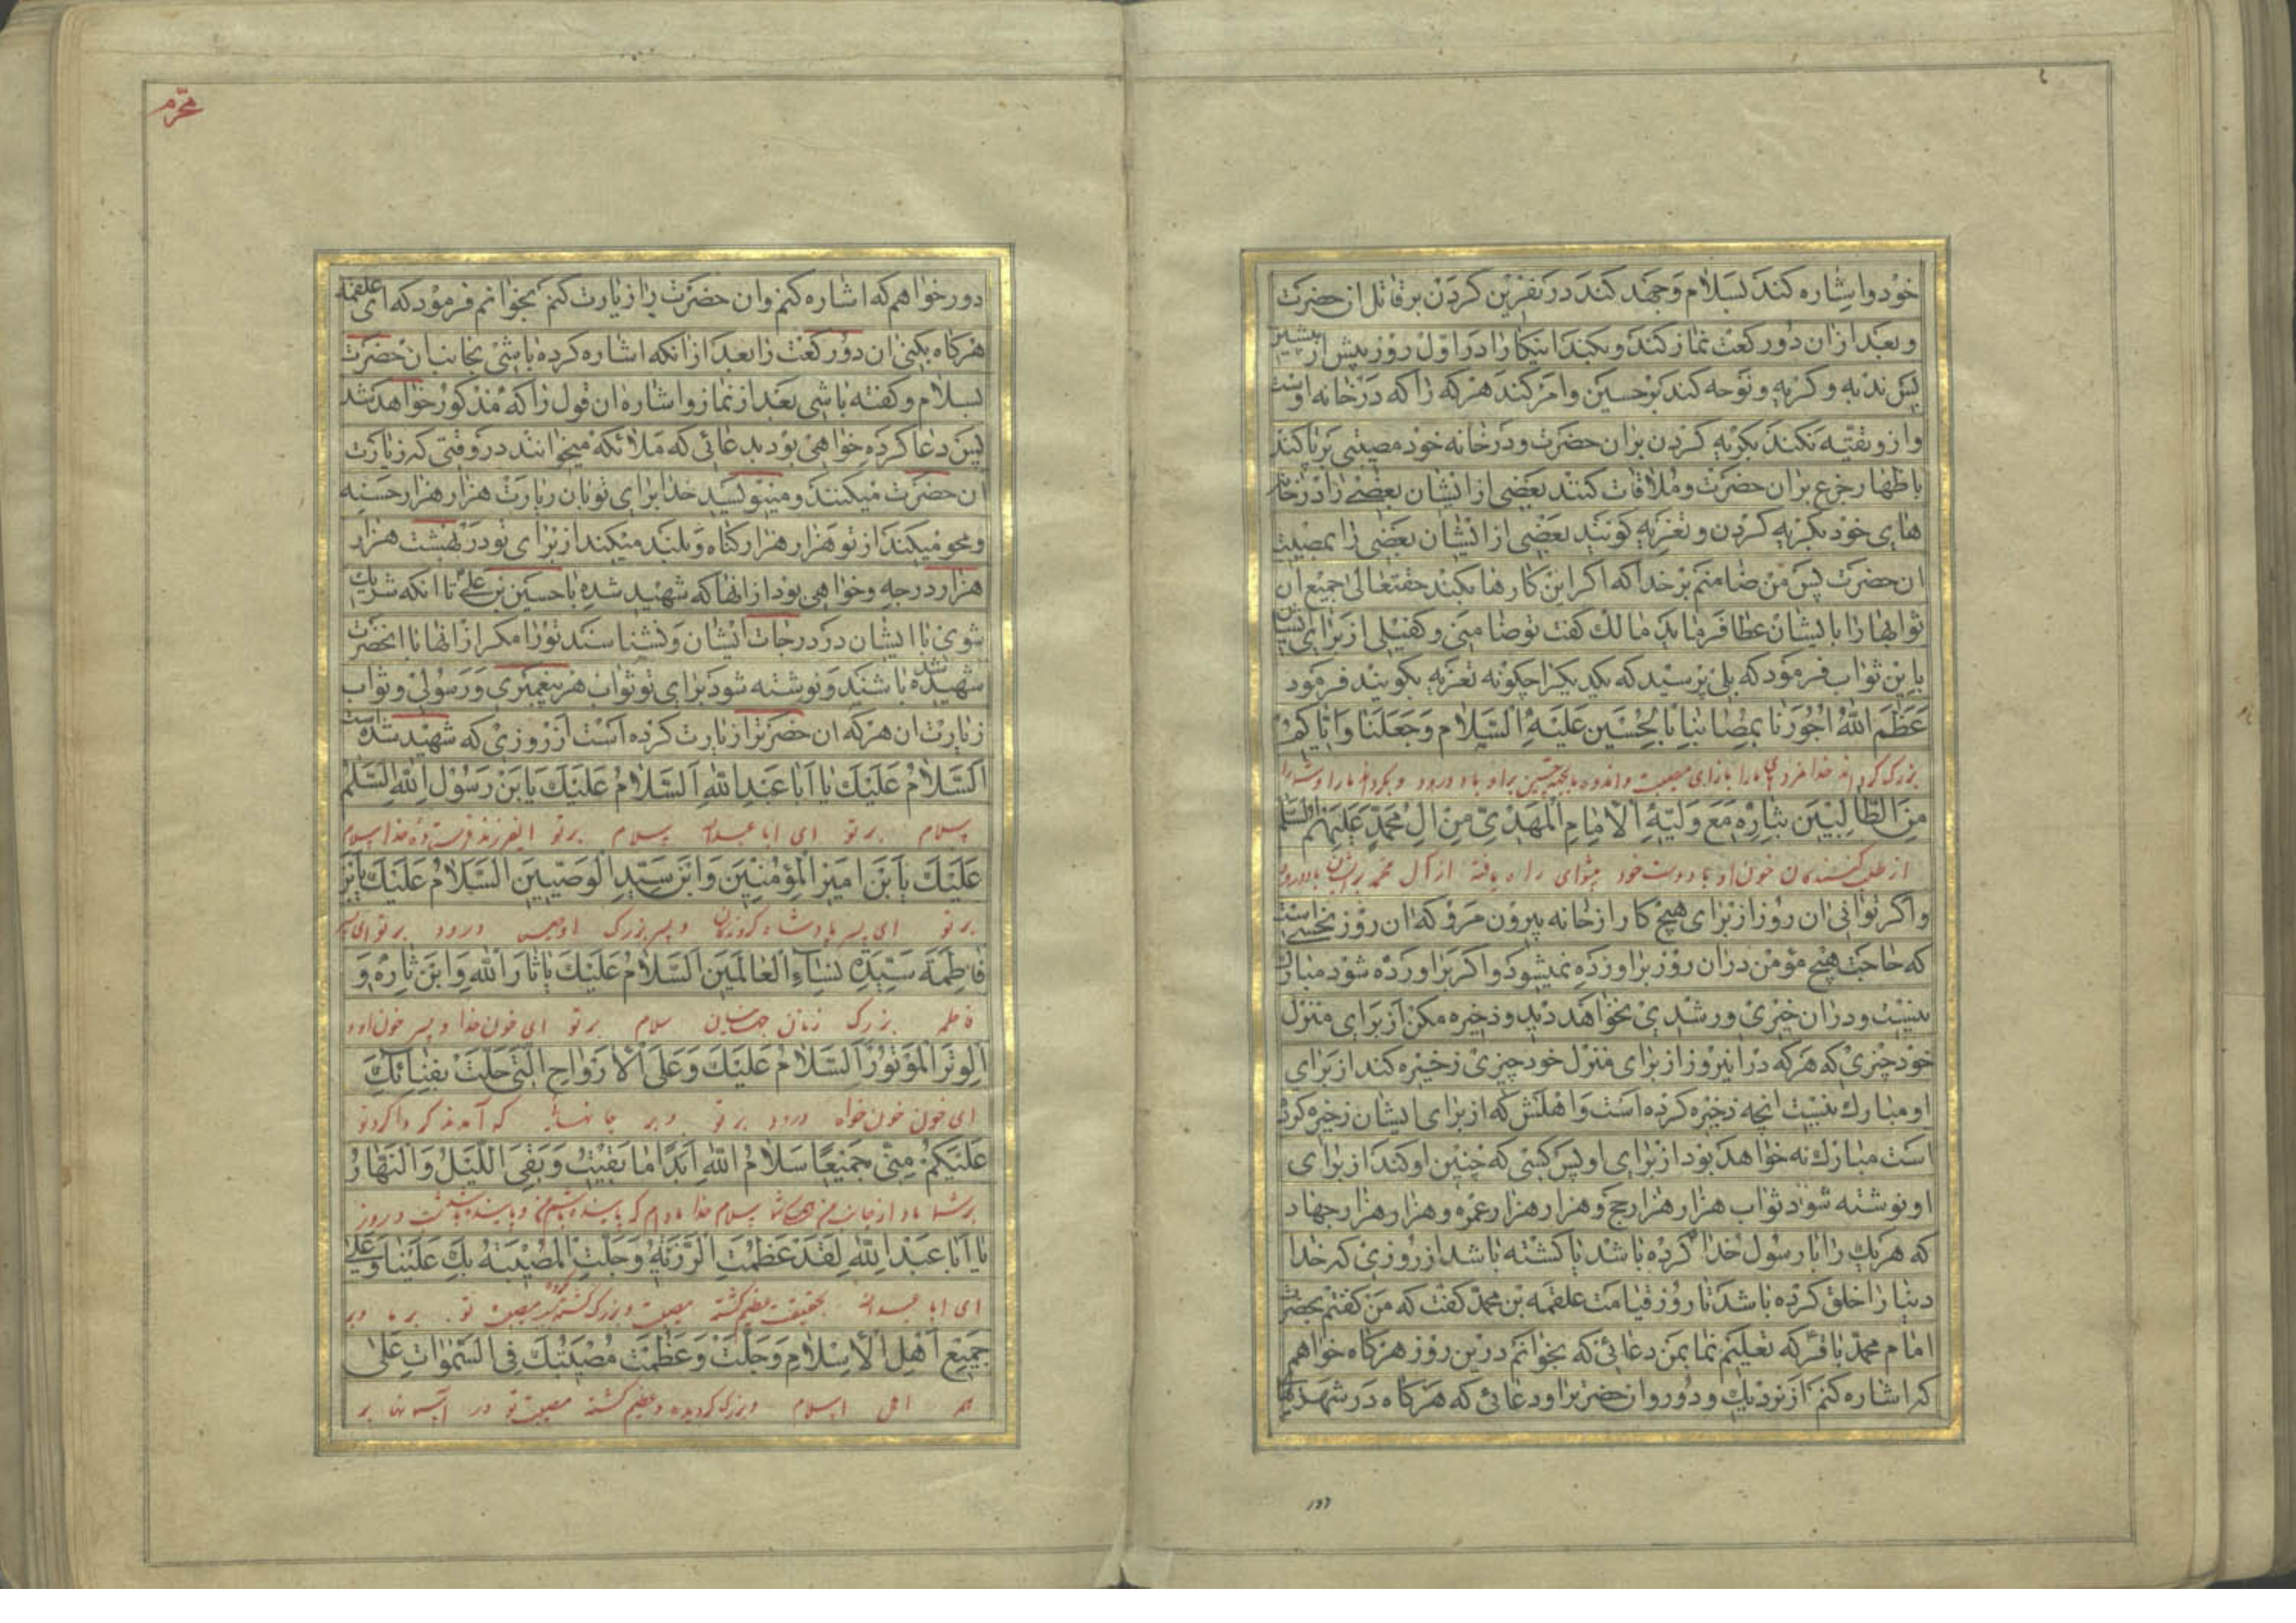 خود و اشاره کند بسلام و جهد کند در نفرین کردن بر قاتل ان حضرت
و بعد از ان دو رکعت نماز کند و بکند اینکار را در اول روز پیش از پیشین
پس ندبه و کریه و نوحه کند بر حسین و امر کند هر که را که در خانه اوست
و ازو تقیه نکند بکریه کردن بران حضرت و در خانه خود مصیبتی برپا کند
باظهار جزع بران حضرت و ملاقات کنند بعضی از ایشان بعضی را در خانه
های خود بکریه کردن و تعزیه کویند بعضی از ایشان بعضی را بمصیبت
ان حضرت پس من ضامنم بر خدا که اکر این کارها بکند حقتعالی جمیع ان
ثوابها را بایشان عطا فرماید مالک کفت تو ضامنی و کفیلی از برای ایشان
باین ثواب فرمود که بلی پرسید که یکدیکر را چکونه تعزیه بکویند فرمود
عَظَّمَ اللهُ اُجُورَنا بِمُصابِنا بِالحُسَینِ عَلَیهِ السَّلام وَجَعَلَنا وَاِیّاکُم
بزرک کرداند خدا مزدهای ما را بازای مصیبت و اندوه ما بحسین بر او باد درود و بکرداند ما را و شما را
مِنَ الطّالِبینَ بِثارِهِ مَعَ وَلِیِّهِ الاِمامِ المَهدِیِّ مِن الِ مُحَمَّدٍ عَلَیهِم السلم
از طلب کنندکان خون او با دوست خود پیشوای راه یافته از آل محمد بر ایشان باد درود
و اکر توانی ان روز از برای هیچ کار از خانه بیرون مرو که ان روز نحسی است
که حاجت هیچ مؤمن دران روز براورده نمیشود و اکر براورده شود مبارک
نیست و دران خیری و رشدی نخواهد دید و ذخیره مکن از برای منزل
خود چیزی که هر که درانروز از برای منزل خود چیزی ذخیره کند از برای
او مبارک نیست انچه ذخیره کرده است و اهلش که از برای ایشان ذخیره کرده
است مبارک نه خواهد بود از برای او پس کسی که چنین او کند از برای
او نوشته شود ثواب هزار هزار حج و هزار هزار عمره و هزار هزار جهاد
که هر یک را با رسول خدا کرده باشد یا کشته باشد از روزی که خدا
دنیا را خلق کرده باشد تا روز قیامت علقمه بن محمد کفت که من کفتم بحضرت
امام محمد باقر که تعلیم نما بمن دعائی که بخوانم درین روز هرکاه خواهم
که اشاره کنم از نزدیک و دور و ان حضرترا و دعائی که هرکاه در شهرهای
محرم
دور خواهم که اشاره کنم و ان حضرت را زیارت کنم بخوانم فرمود که ای علقمه
هرکاه بکنی ان دو رکعت را بعد از انکه اشاره کرده باشی بجانب ان حضرت
بسلام و کفته باشی بعد از نماز و اشاره ان قول را که مذکور خواهد شد
پس دعا کرده خواهی بود بدعائی که ملائکه میخوانند در وقتی که زیارت
ان حضرت میکنند و مینویسد خدا برای تو بان زیارت هزار هزار حسنه
و محو میکند از تو هزار هزار کناه و بلند میکند از برای تو در بهشت هزار
هزار درجه و خواهی بود از انها که شهید شده با حسین بن علی تا انکه شریک
شوی با ایشان در درجات ایشان و نشناسند تو را مکر از انها با انحضرت
شهید شده باشند و نوشته شود برای تو ثواب هر پیغمبری و رسولی و ثواب
زیارت ان هر که ان حضرترا زیارت کرده است از روزی که شهید شده است
اَلسَّلامُ عَلَیکَ یا اَبا عَبدِ اللهِ اَلسَّلامُ عَلَیکَ یَا بنَ رَسُولِ اللهِ السَّلَمُ
سلام بر تو ای ابا عبدالله سلام بر تو ای فرزند فرستاده خدا سلام
عَلَیکَ یَا بنَ امیرِ المُؤمِنینَ وَ ابنَ سَیِّدِ الوَصِیّینَ السَّلامُ عَلَیکَ یَابنَ
بر تو ای پسر پادشاه کروندکان و پسر بزرک اوصیا درود بر تو ای پسر
فاطِمَةَ سَیِّدَةِ نِساءِ العالَمینَ السَّلامُ عَلَیکَ یا ثارَ اللهِ وَ ابنَ ثارِهِ وَ
فاطمه بزرک زنان جهانیان سلام بر تو ای خون خدا و پسر خون او و
الوِترَ المَوتُورَ اَلسَّلامُ عَلَیکَ وَ عَلَی الاَرواحِ الَّتی حَلَّت بِفِنائِکَ
ای خون خون خواه درود بر تو و بر جانهائی که آمدند کرداکرد تو
عَلَیکُم مِنّی جَمیعًا سَلامُ اللهِ اَبَدًا ما بَقیتُ وَ بَقِیَ اللَّیلُ وَ النَّهارُ
بر شما باد از جانب من سلام خدا مادام که پاینده باشم من و پاینده باشد شب و روز
یا اَبا عَبدِ اللهِ لَقَد عَظُمَتِ الرَّزِیَّةُ وَ جَلَّتِ المُصیبَةُ بِکَ عَلَینا وَ عَلی
ای ابا عبدالله بتحقیق عظیم کشته مصیبت و بزرک کشته مصیبت تو بر ما و بر
جَمیعِ اَهلِ الاِسلامِ وَ جَلَّت وَ عَظُمَت مُصیبَتُکَ فِی السَّمواتِ عَلی
همه اهل اسلام و بزرک کردیده و عظیم کشته مصیبت تو در آسمانها بر